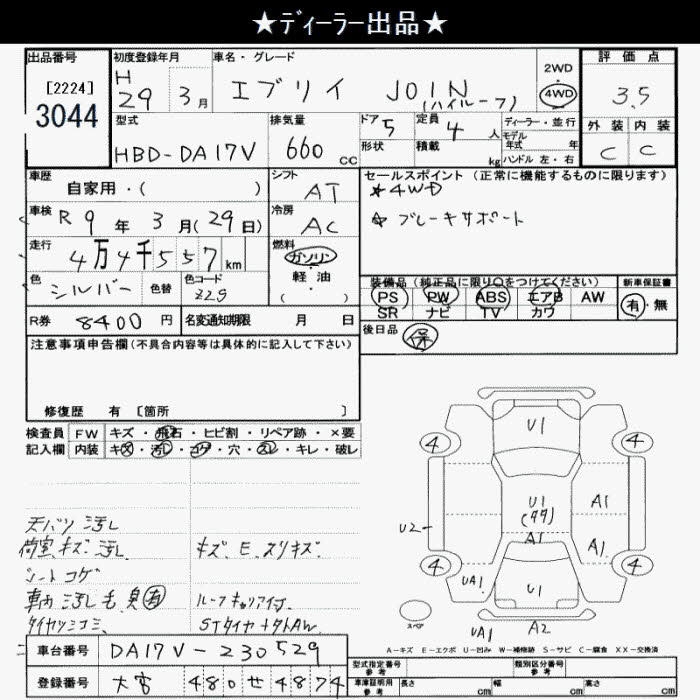 ★ディーラー出品★
出品番号
[2224]
3044
初度登録年月
H
29 3月
車名・グレード
エブリイ JOIN
(ハイルーフ)
2WD
4WD
評価点
3.5
外装 内装
C C
型式
HBD-DA17V
排気量
660 CC
ドア 5
形状
定員 4 人
積載 kg
ディーラー・並行
モデル
年式 年
ハンドル 左・右
車歴
自家用・( )
シフト
AT
セールスポイント (正常に機能するものに限ります)
★4WD
☆ ブレーキサポート
車検 R 9 年 3 月(29日)
冷房
AC
走行
4万4千557km
燃料
ガソリン
軽・油
( )
色
シルバー
色替
色コード
Z2S
装備品(純正品に限り○をつけてください)
PS PW ABS エアB AW
SR ナビ TV カワ
新車保証書
有・無
R券 8400円
名変通知期限 月 日
後日品 保
注意事項申告欄(不具合内容等は具体的に記入して下さい)
修復歴 有 [箇所 ]
検査員 FW キズ・飛石・ヒビ割・リペア跡・×要
記入欄 内装 キズ・汚れ・コゲ・穴・スレ・キレ・破レ
天バリ 汚レ
荷室、キズ 汚レ
キズ、E、スリキズ
シートコゲ
車内 汚レ 毛 臭 有
ルーフキャリア付
タイヤツミコミ
STタイヤ+タトAW
U1
4 4
U1
(44)
A1
A1
A1
U2
4 4
UA1
U1
スペア
UA1
A2
A-キズ E-エクボ U-凹み W-補修跡 S-サビ C-腐食 XX-交換済
車台番号 DA17V-230529
登録番号 大宮 480せ4874
型式指定番号
参考
類別区分番号
参考
車庫証明用
参考
長さ cm
幅 cm
高さ cm